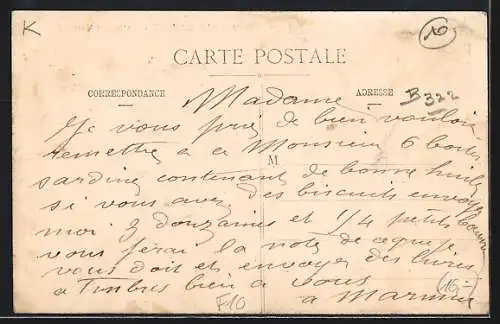 K
10
CARTE POSTALE
CORRESPONDANCE
ADRESSE
B 322
Madame
Je vous prie de bien vouloir
remettre a ce Monsieur 6 boites
M
sardine contenant de bonne huile
si vous avez des biscuits envoyez
moi 3 douzaines et 1/4 petits beurre
vous ferai la note de ce que je
vous doit et envoyer des livres
a Timbres bien a vous
a Marmier
F10
10.-